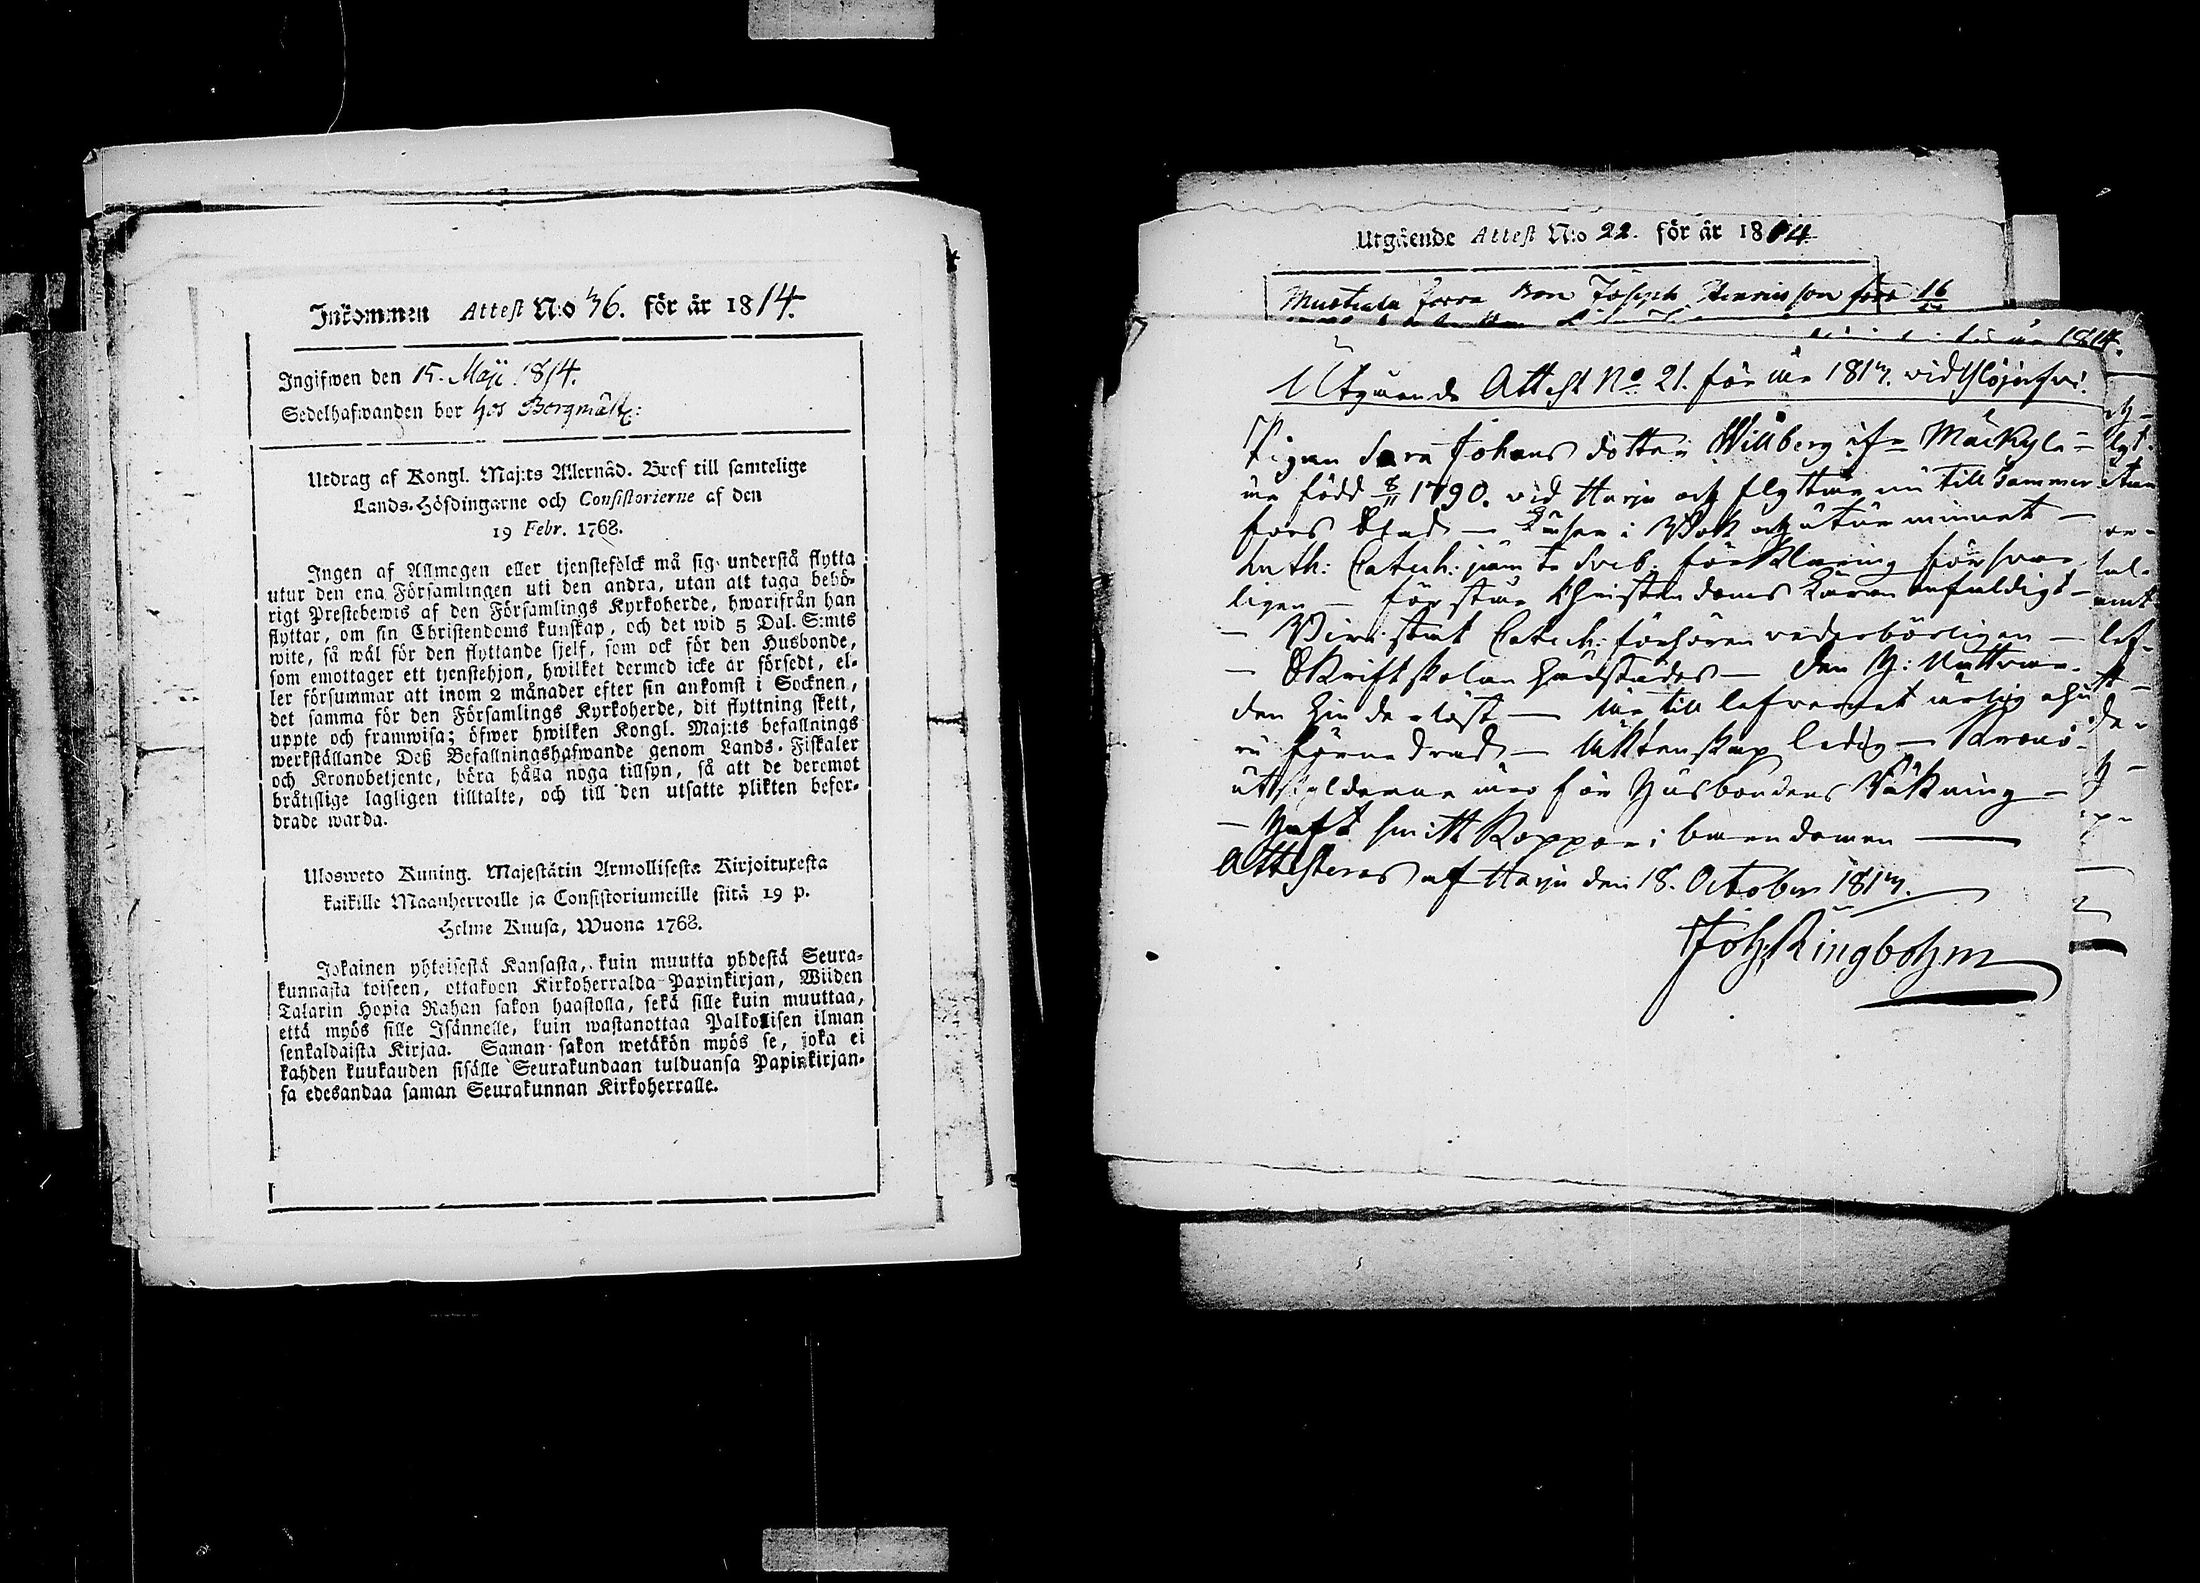 Inkommen Attest N:o 36. för år 1814.
Ingifwen den 15. Maji 1814.
Sedelhafwanden bor hos Bergmäst:
Utdrag af Kongl. Maj:ts Allernåd. Bref till samtelige
Lands-Höfdingarne och Consistorierne af den
19 Febr. 1768.
Ingen af Allmogen eller tjenstefolck må sig understå flytta
utur den ena Församlingen uti den andra, utan att taga behö-
rigt Prestebewis af den Församlings Kyrkoherde, hwarifrån han
flyttar, om sin Christendoms kunskap, och det wid 5 Dal. S:mts
wite, så wäl för den flyttande sjelf, som ock för den Husbonde,
som emottager ett tjenstehjon, hwilket dermed icke är försedt, el-
ler försummar att inom 2 månader efter sin ankomst i Socknen,
det samma för den Församlings Kyrkoherde, dit flyttning skett,
uppte och framwisa; öfwer hwilken Kongl. Maj:ts befallnings
werkställande Deß Befallningshafwande genom Lands-Fiskaler
och Kronobetjente, böra hålla noga tillsyn, så att de deremot
bråtislige lagligen tilltalte, och till den utsatte plikten befor-
drade warda.
Ulosweto Kuning. Majestätin Armollisesta Kirjoituxesta
kaikille Maanherroille ja Consistoriumeille siitä 19 p.
Helme Kuusa, Wuona 1768.
Jokainen yhteisestä Kansasta, kuin muutta yhdestä Seura-
kunnasta toiseen, ottakoon Kirkoherralda Papinkirjan, Wiiden
Talarin Hopia Rahan sakon haastolla, sekä sille kuin muuttaa,
että myös sille Isännelle, kuin wastanottaa Palkollisen ilman
senkaldaista Kirjaa. Saman sakon wetäkön myös se, joka ei
kahden kuukauden sisälle Seurakundaan tulduansa Papinkirjan-
sa edesandaa saman Seurakunnan Kirkoherralle.
Utgående Attest N:o 22. för år 1814
Mustiala Joseph Henricsson född 16
1814.
Utgående Attest No 21. för år 1813. vid Ylöjärfvi.
Pigan Sara Johans dotter Willberg ifr Mäckylä =
är född 8/11 1790. vid Harju och flyttar nu till Tammer
fors Stad — Läser i Bok och utur minnet —
Luth: Catech: jämte Sveb: förklaring försvar
ligen — förstår Christendoms Läran enfaldigt —
— Bivistat Catech: förhören vederbörligen —
— Skriftskolan härstädes — den H: Nattvar-
den hinderlöst — är till lefvernet ärlig och
— Äktenskap ledig — Krono-
utskylderna äro för Husbondens Räkning —
— Haft smitt Koppor i barndomen —
Attesteras af Harju den 18. October 1813.
Joh: Ringbohm